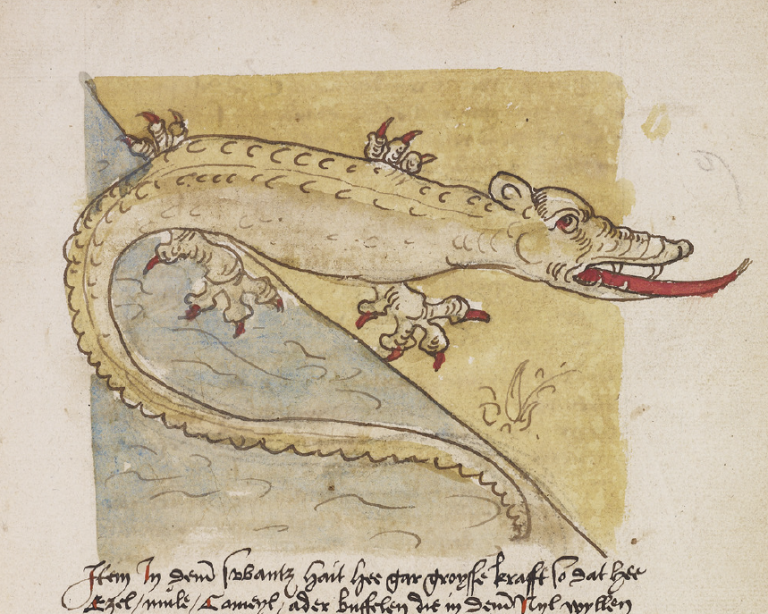 Item In denn swantz hait hee gar groysse krafft so dat hee
Ezel / mule / Cameyl / ader buffelen die in denn Nyl wyllen